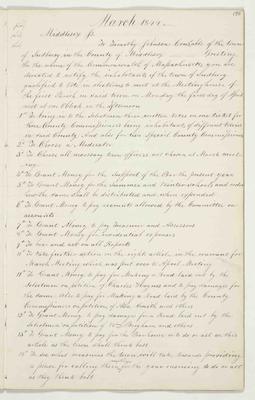 March 1844
Middlesex ss.
To Timothy Johnson Constable of the town
of Sudbury in the County of Middlesex Greeting
In the name of the Commonwealth of Massachusetts you are
directed to notify the inhabitants of the town of Sudbury
qualified to Vote in Elections to meet at the Meetinghouse of
the first Parish in said town on Monday the first day of April
next at one Oclock in the afternoon
1st To bring in to the Selectmen their written votes on one ticket for
three County Commissioners being inhabitants of different towns
in said County And also for two Special County Commissioners
2d To Choose a Moderator
3d To Choose all necessary town officers not chosen at March meet
ing
4th To Grant Money for the Support of the Poor the present year
5th To Grant Money for the Summer and Winter Schools and order
how the same shall be distributed and when expended
6th To Grant Money to pay accounts allowed by the Committee on
accounts
7th To Grant Money to pay Assessors
8th To Grant Money for incidental expenses
9th To hear and act on all Reports
10th To take further action on the eight article, in the warrant for
March Meeting which was put over to April Meeting
11th To Grant Money to pay for Making a Road laid out by the
Selectmen on petition of Charles Haynes and to pay damages for
the same. Also to pay for Making a Road laid out by the County
Commissioners on petition of and others
12th To Grant Money to pay damages for a Road laid out by the
Selectmen on petition of Brigham and others
13th To Grant Money to pay for the or to do or act on this
article as the town shall think best
14 To see what measures the town will take towards providing
a place for calling their meetings for the year ensuing to do or act
as they think best